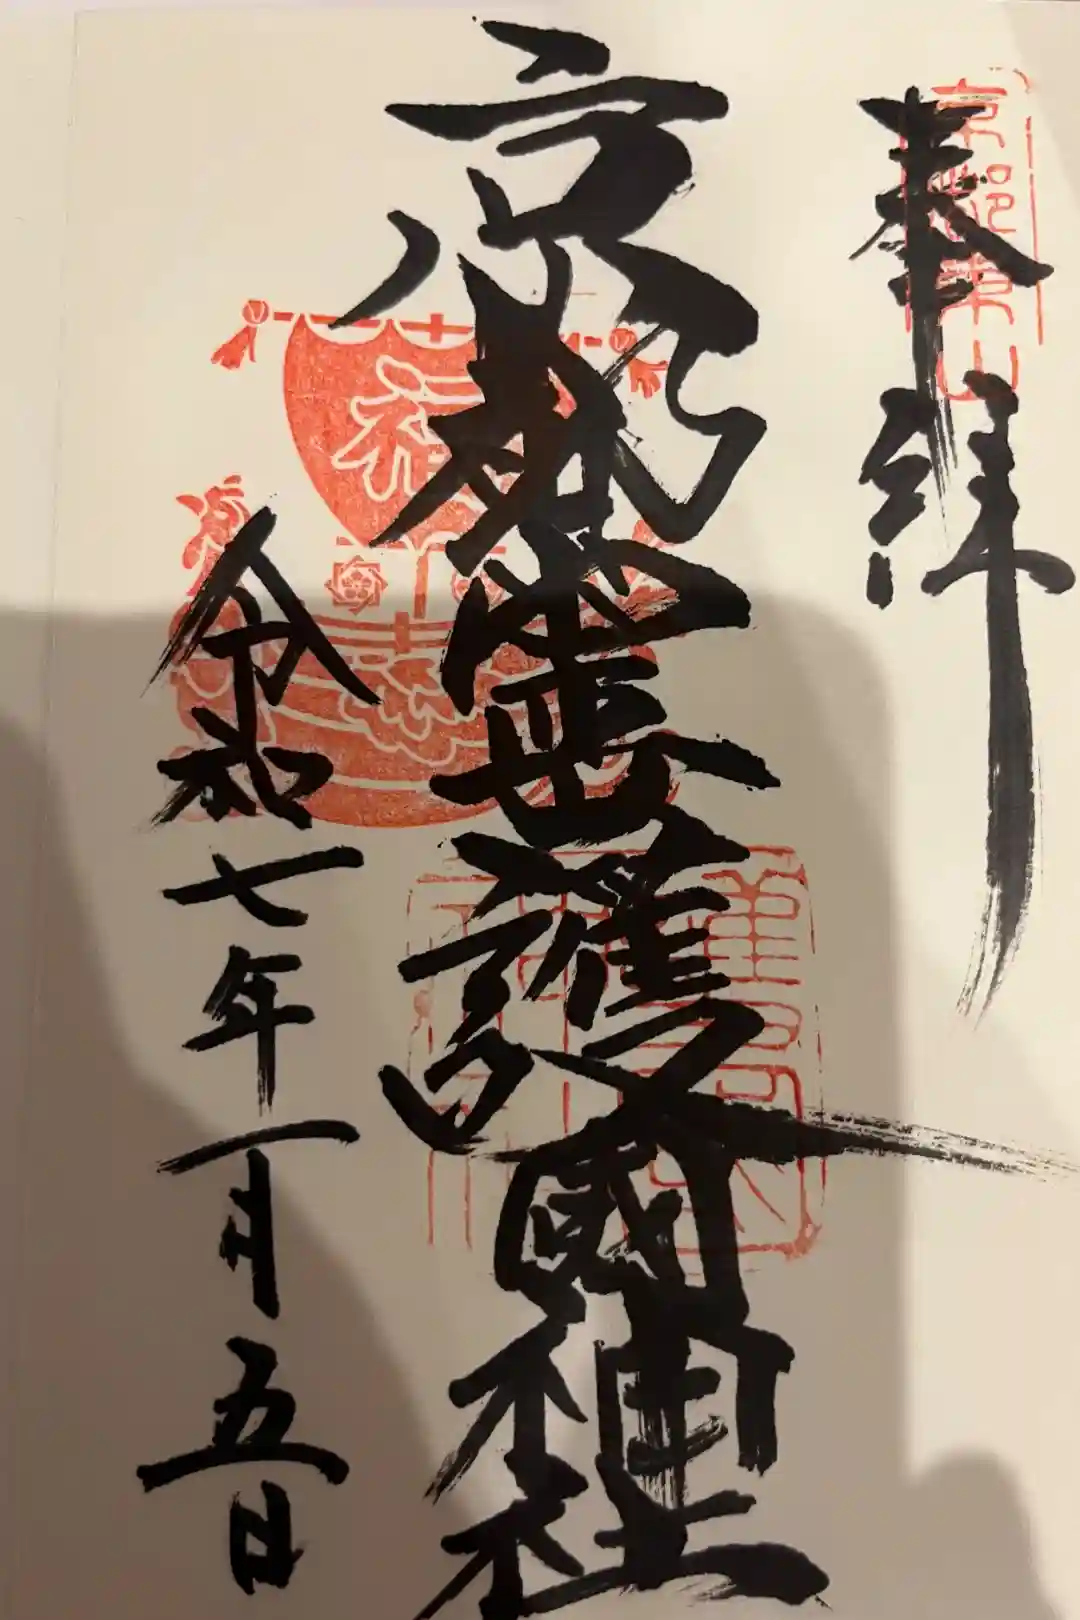 奉拝
京都霊山
京都霊山護國神社
福
令和七年一月五日